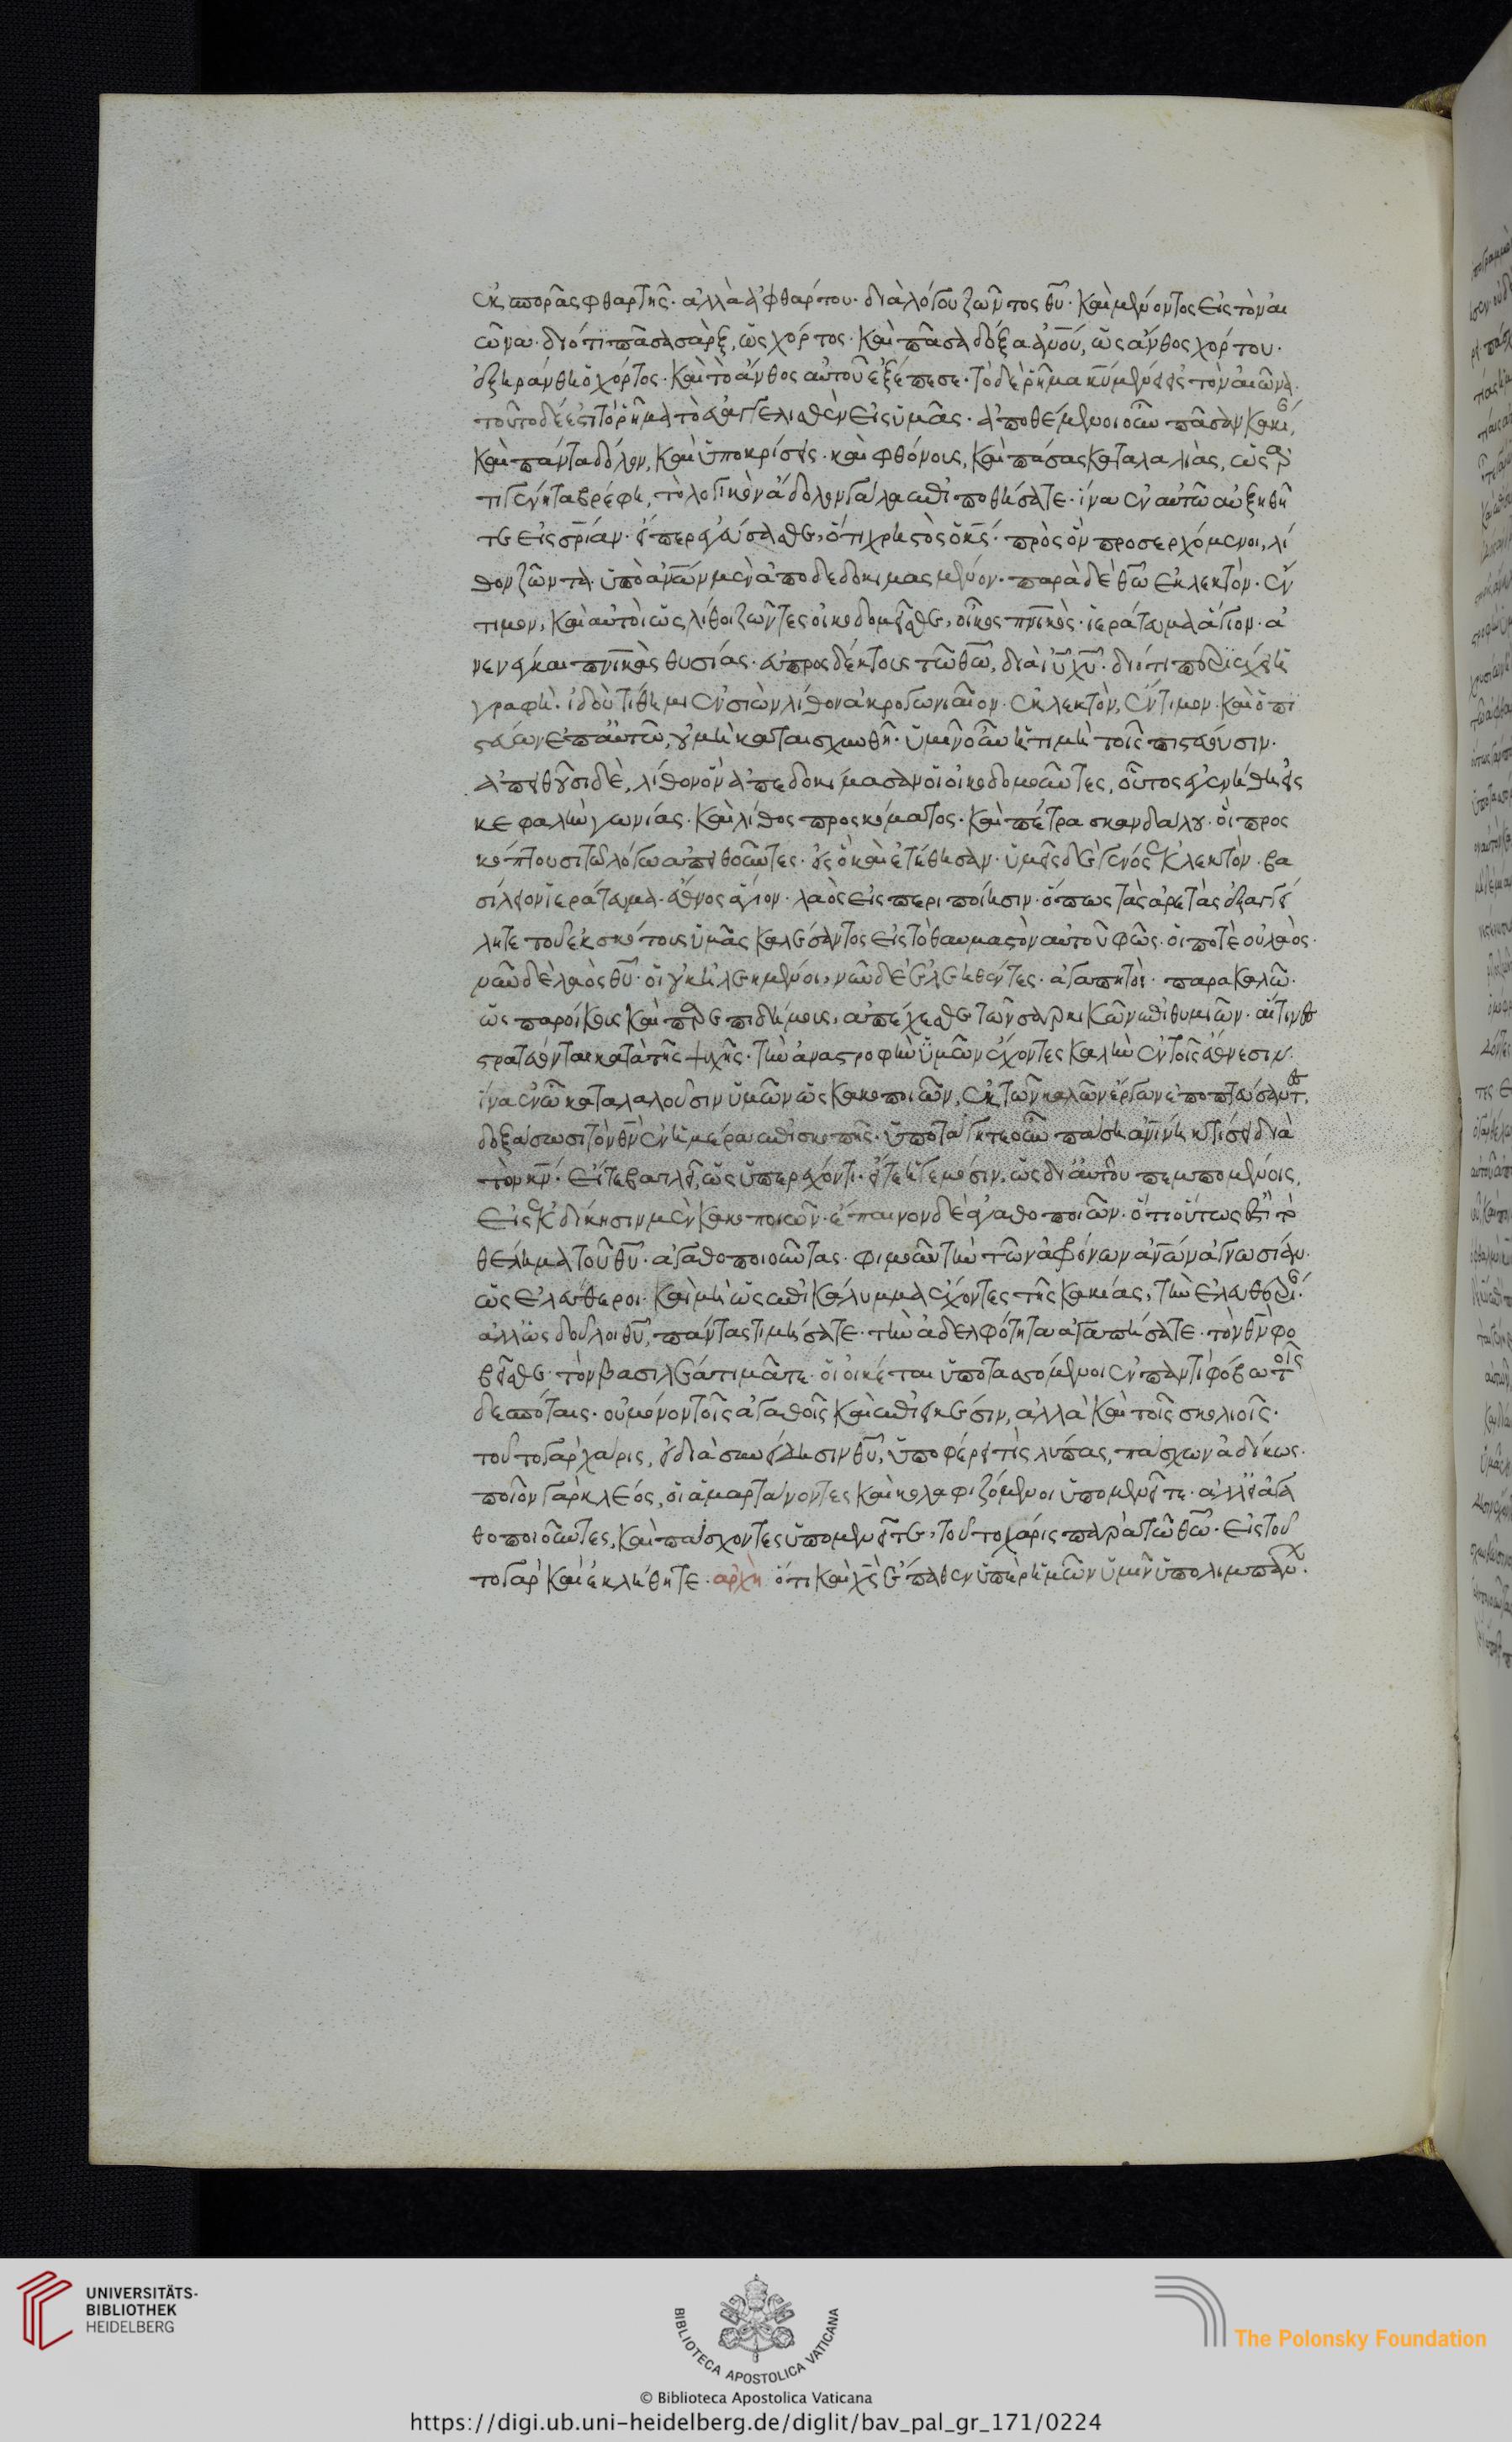 ἐκ σπορᾶς φθαρτῆς· ἀλλὰ ἀφθάρτου· διὰ λόγου ζῶντος θῦ· καὶ μένοντος εἰς τὸν αἰ
ῶνα· διότι πᾶσα σὰρξ, ὡς χόρτος· καὶ πᾶσα δόξα ἀνοῦ, ὡς ἄνθος χόρτου·
ἐξηράνθη ὁ χόρτος· καὶ τὸ ἄνθος αὐτοῦ ἐξέπεσε· τὸ δὲ ῥῆμα κῦ μένει εἰς τὸν αἰῶνα·
τοῦτο δέ ἐστι τὸ ῥῆμα τὸ εὐαγγελισθὲν εἰς ὑμᾶς· ἀποθέμενοι οὖν πᾶσαν κακί
καὶ πάντα δόλον, καὶ ὑποκρίσεις· καὶ φθόνους, καὶ πάσας καταλαλιάς, ὡς ἀρ
τιγένητα βρέφη, τὸ λογικὸν ἄδολον γάλα ἐπιποθήσατε· ἵνα ἐν αὐτῶ αὐξηθῆ
τε εἰς σρίαν· εἴπερ ἐγεύσασθε, ὅτι χρηστὸς ὁ κς· πρὸς ὃν προσερχόμενοι, λί
θον ζῶντα· ὑπὸ ἀνων μὲν ἀποδεδοκιμασμένον· παρὰ δὲ θῶ ἐκλεκτὸν· ἔν
τιμον, καὶ αὐτοὶ ὡς λίθοι ζῶντες οἰκοδομεῖσθε, οἶκος πνικὸς· ἱεράτευμα ἅγιον· ἀ
νενέγκαι πνικὰς θυσίας· εὐπροσδέκτους τῶ θῶ, διὰ ιῦ χῦ· διότι περιέχει ἡ
γραφή· ἰδοὺ τίθημι ἐν σιὼν λίθον ἀκρογωνιαῖον· ἐκλεκτὸν, ἔντιμον· καὶ ὁ πι
στεύων ἐπαὐτῶ, οὐ μὴ καταισχυνθῆ· ὑμῖν οὖν ἡ τιμὴ τοῖς πιστεύουσιν·
ἀπειθοῦσι δὲ, λίθον ὃν ἀπεδοκίμασαν οἱ οἰκοδομοῦντες, οὗτος ἐγενήθη εἰς
κεφαλὴν γωνίας· καὶ λίθος προσκόματος· καὶ πέτρα σκανδάλου· οἳ προσ
κόπτουσι τῶ λόγω ἀπειθοῦντες· εἰς ὃ καὶ ἐτέθησαν· ὑμεῖς δὲ γένος ἐκλεκτὸν· βα
σίλειον ἱεράτευμα· ἔθνος ἅγιον· λαὸς εἰς περιποίησιν· ὅπως τὰς ἀρετὰς ἐξαγγεί
λητε τοῦ ἐκ σκότους ὑμᾶς καλέσαντος εἰς τὸ θαυμαστὸν αὐτοῦ φῶς· οἵ ποτὲ οὐ λαὸς·
νῦν δὲ λαὸς θῦ· οἱ οὐκ ἠλεημένοι, νῦν δὲ ἐλεηθέντες· ἀγαπητοὶ· παρακαλῶ·
ὡς παροίκους καὶ παρεπιδήμους, ἀπέχεσθε τῶν σαρκικῶν ἐπιθυμιῶν· αἵτινες
στρατεύονται κατὰ τῆς ψυχῆς· τὴν ἀναστροφὴν ὑμῶν ἔχοντες καλὴν ἐν τοῖς ἔθνεσιν·
ἵνα ἐν ὧ καταλαλοῦσιν ὑμῶν ὡς κακοποιῶν, ἐκ τῶν καλῶν ἔργων ἐποπτεύσαντες,
δοξάσωσι τὸν θν ἐν ἡμέρα ἐπισκοπῆς· ὑποτάγητε οὖν πάση ἀνίνη κτίσει διὰ
τὸν κν· εἴτε βασιλεῖ, ὡς ὑπερέχοντι· εἴτε ἡγεμόσιν, ὡς δι αὐτοῦ πεμπομένοις,
εἰς ἐκδίκησιν μὲν κακοποιῶν· ἔπαινον δὲ ἀγαθοποιῶν· ὅτι οὕτως ἐστὶ τὸ
θέλημα τοῦ θῦ· ἀγαθοποιοῦντας· φιμοῦν τὴν τῶν ἀφρόνων ἀνων ἀγνωσίαν·
ὡς ἐλεύθεροι· καὶ μὴ ὡς ἐπικάλυμμα ἔχοντες τῆς κακίας, τὴν ἐλευθερί·
ἀλλ ὡς δοῦλοι θῦ, πάντας τιμήσατε· τὴν ἀδελφότητα ἀγαπήσατε· τὸν θν φο
βεῖσθε· τὸν βασιλέα τιμᾶτε· οἱ οἰκέται ὑποτασσόμενοι ἐν παντὶ φόβω τοῖς
δεσπόταις· οὐ μόνον τοῖς ἀγαθοῖς καὶ ἐπιεικέσιν, ἀλλὰ καὶ τοῖς σκολιοῖς·
τοῦτο γὰρ χάρις, εἰ διὰ συνείδησιν θῦ, ὑποφέρει τὶς λύπας, πάσχων ἀδίκως·
ποῖον γὰρ κλέος, οἱ ἁμαρτάνοντες καὶ κολαφιζόμενοι ὑπομενεῖτε· ἀλλ εἰ ἀγα
θοποιοῦντες, καὶ πάσχοντες ὑπομενεῖτε, τοῦτο χάρις παρὰ τῶ θῶ· εἰς τοῦ
το γὰρ καὶ ἐκλήθητε· ἀρχὴ ὅτι καὶ χς ἔπαθεν ὑπὲρ ἡμῶν ὑμῖν ὑπολιμπάν·
UNIVERSITÄTS-
BIBLIOTHEK
HEIDELBERG
BIBLIOTECA APOSTOLICA VATICANA
The Polonsky Foundation
© Biblioteca Apostolica Vaticana
https://digi.ub.uni-heidelberg.de/diglit/bav_pal_gr_171/0224